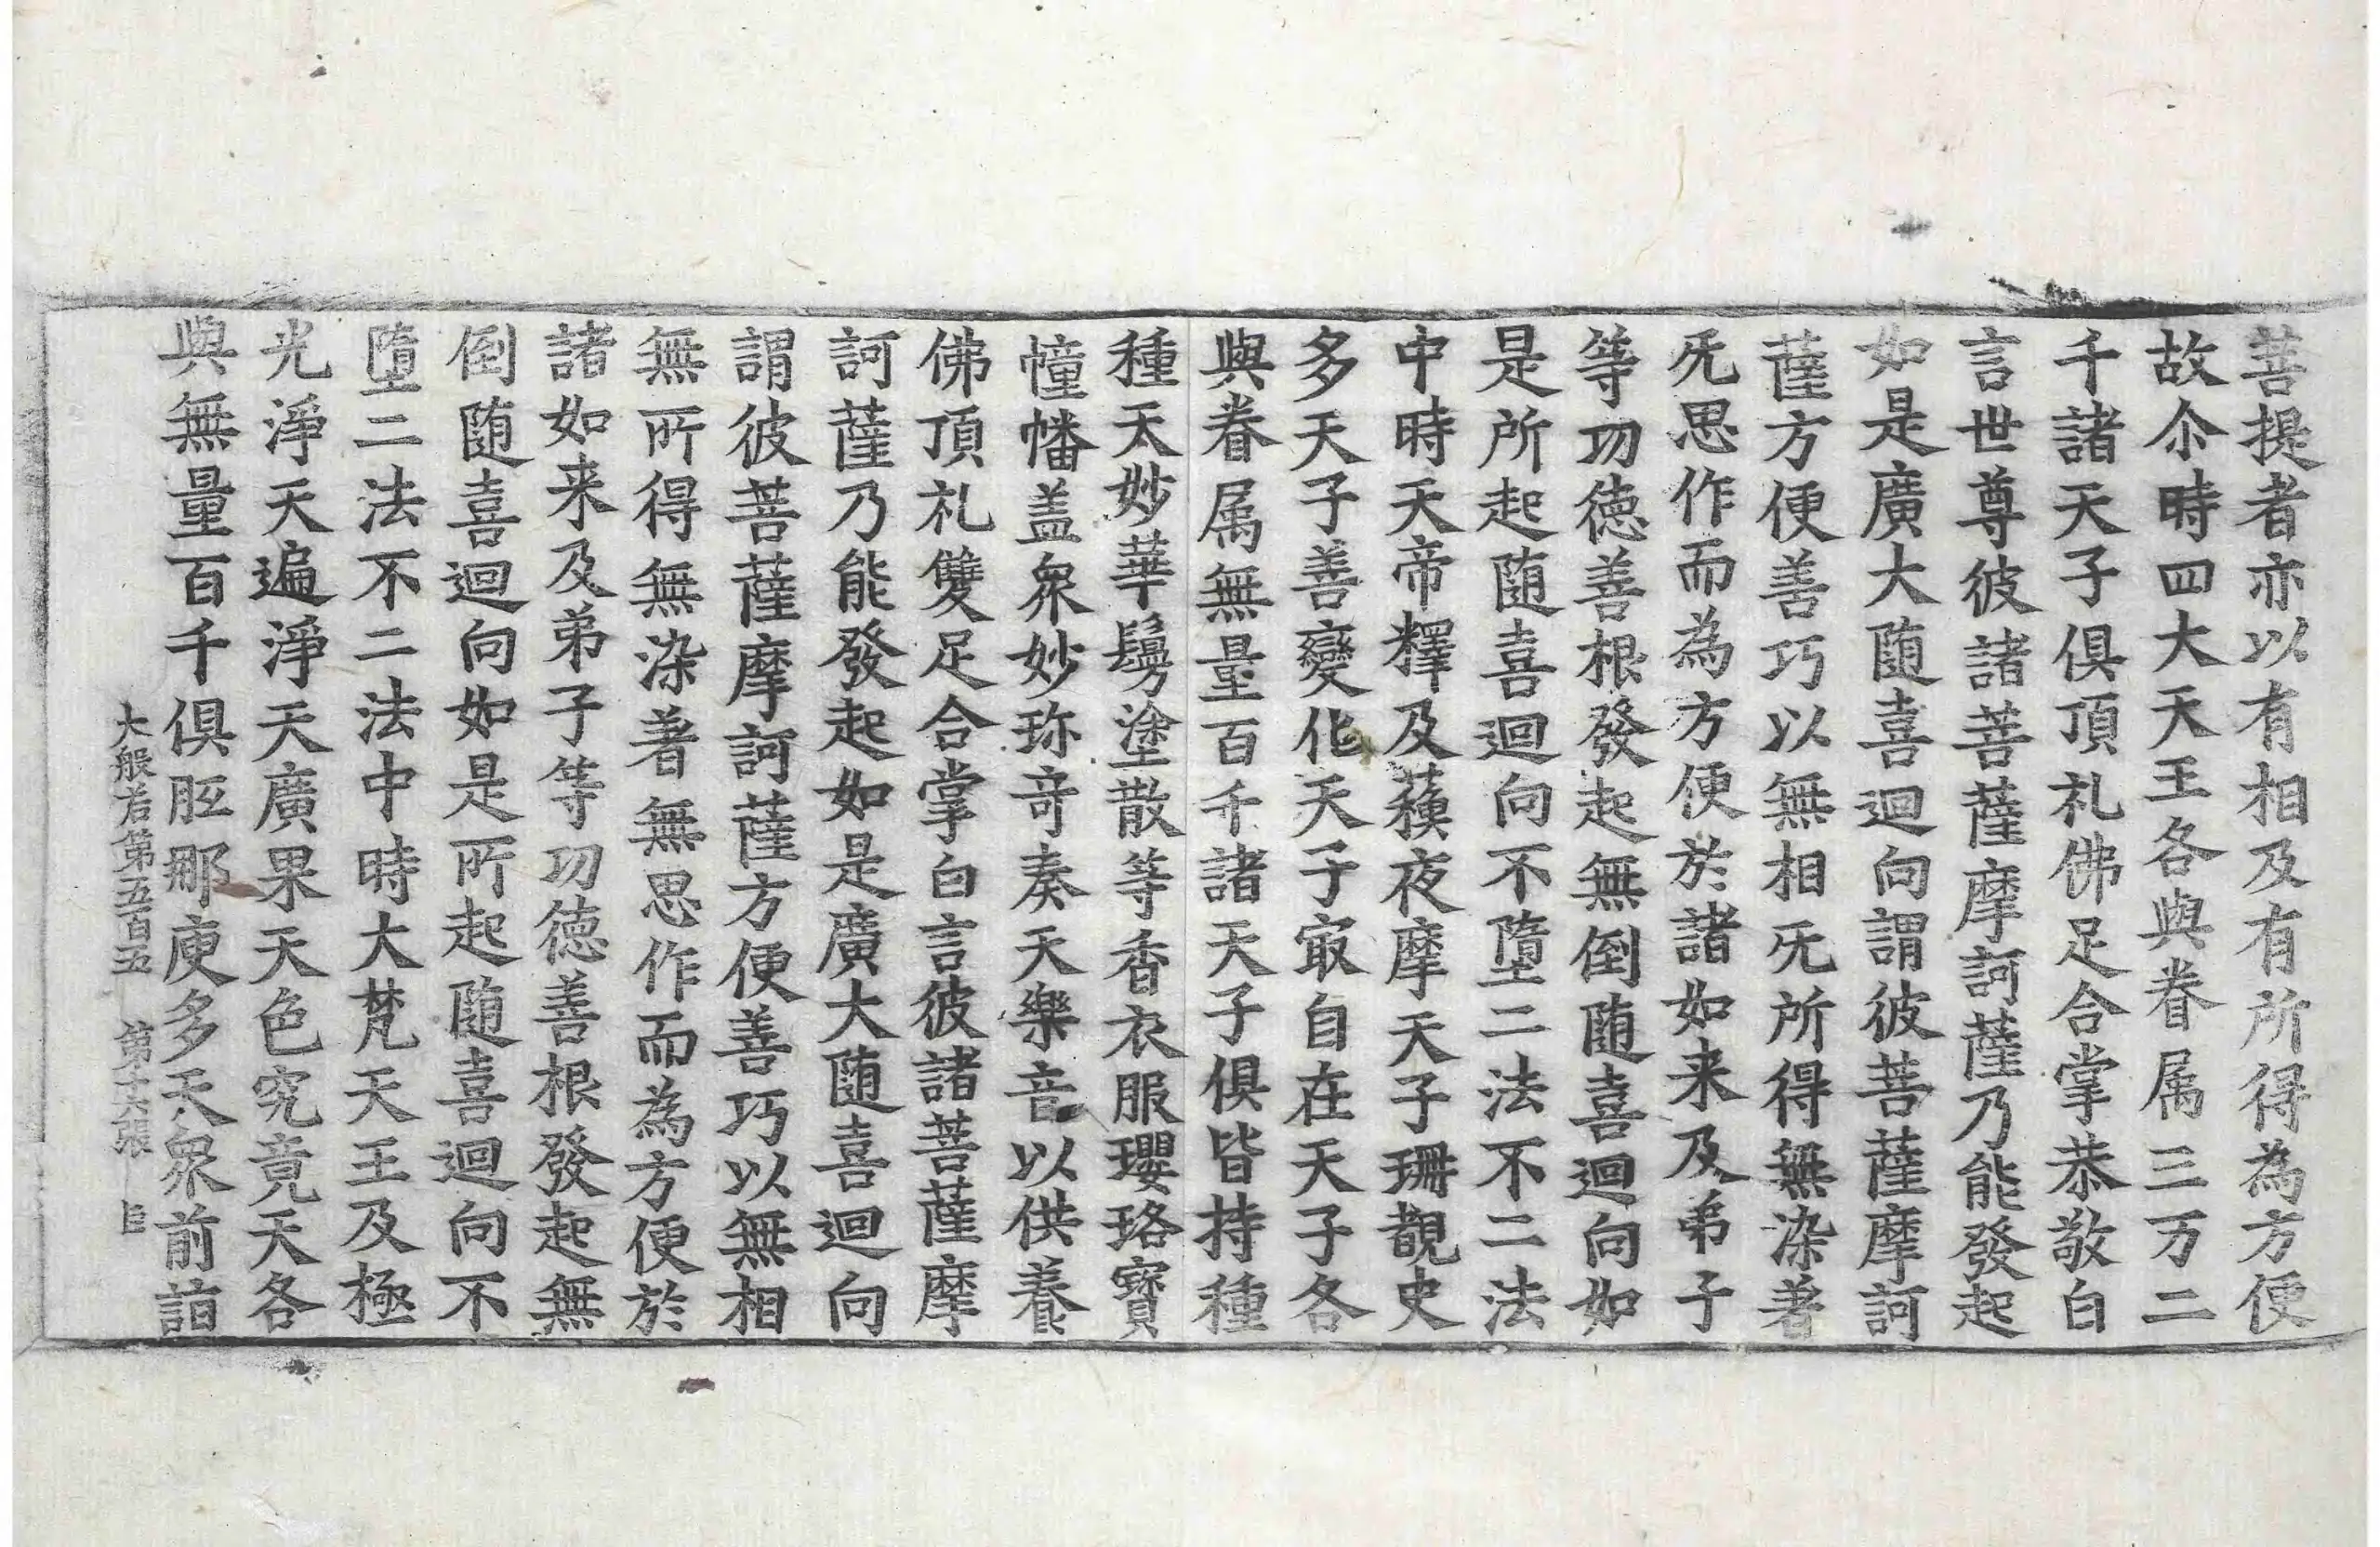 菩提者亦以有相及有所得為方便
故尒時四大天王各與眷属三万二
千諸天子俱頂礼佛足合掌恭敬白
言世尊彼諸菩薩摩訶薩乃能發起
如是廣大随喜迴向謂彼菩薩摩訶
薩方便善巧以無相旡所得無染著
旡思作而為方便於諸如来及弟子
等功徳善根發起無倒随喜迴向如
是所起随喜迴向不墮二法不二法
中時天帝釋及蘓夜摩天子珊覩史
多天子善變化天子㝡自在天子各
與眷属無量百千諸天子俱皆持種
種天妙華鬘塗散等香衣服瓔珞寶
幢幡盖衆妙珎竒奏天樂音以供養
佛頂礼雙足合掌白言彼諸菩薩摩
訶薩乃能發起如是廣大随喜迴向
謂彼菩薩摩訶薩方便善巧以無相
無所得無染著無思作而為方便於
諸如来及弟子等功徳善根發起無
倒随喜迴向如是所起随喜迴向不
墮二法不二法中時大梵天王及極
光淨天遍淨天廣果天色究竟天各
與無量百千俱胝那庾多天衆前詣
大般若第五百五 第十六張 臣